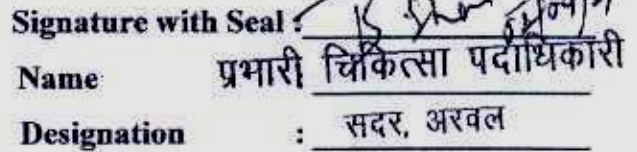 Signature with Seal :
Name प्रभारी चिकित्सा पदाधिकारी
Designation : सदर, अरवल